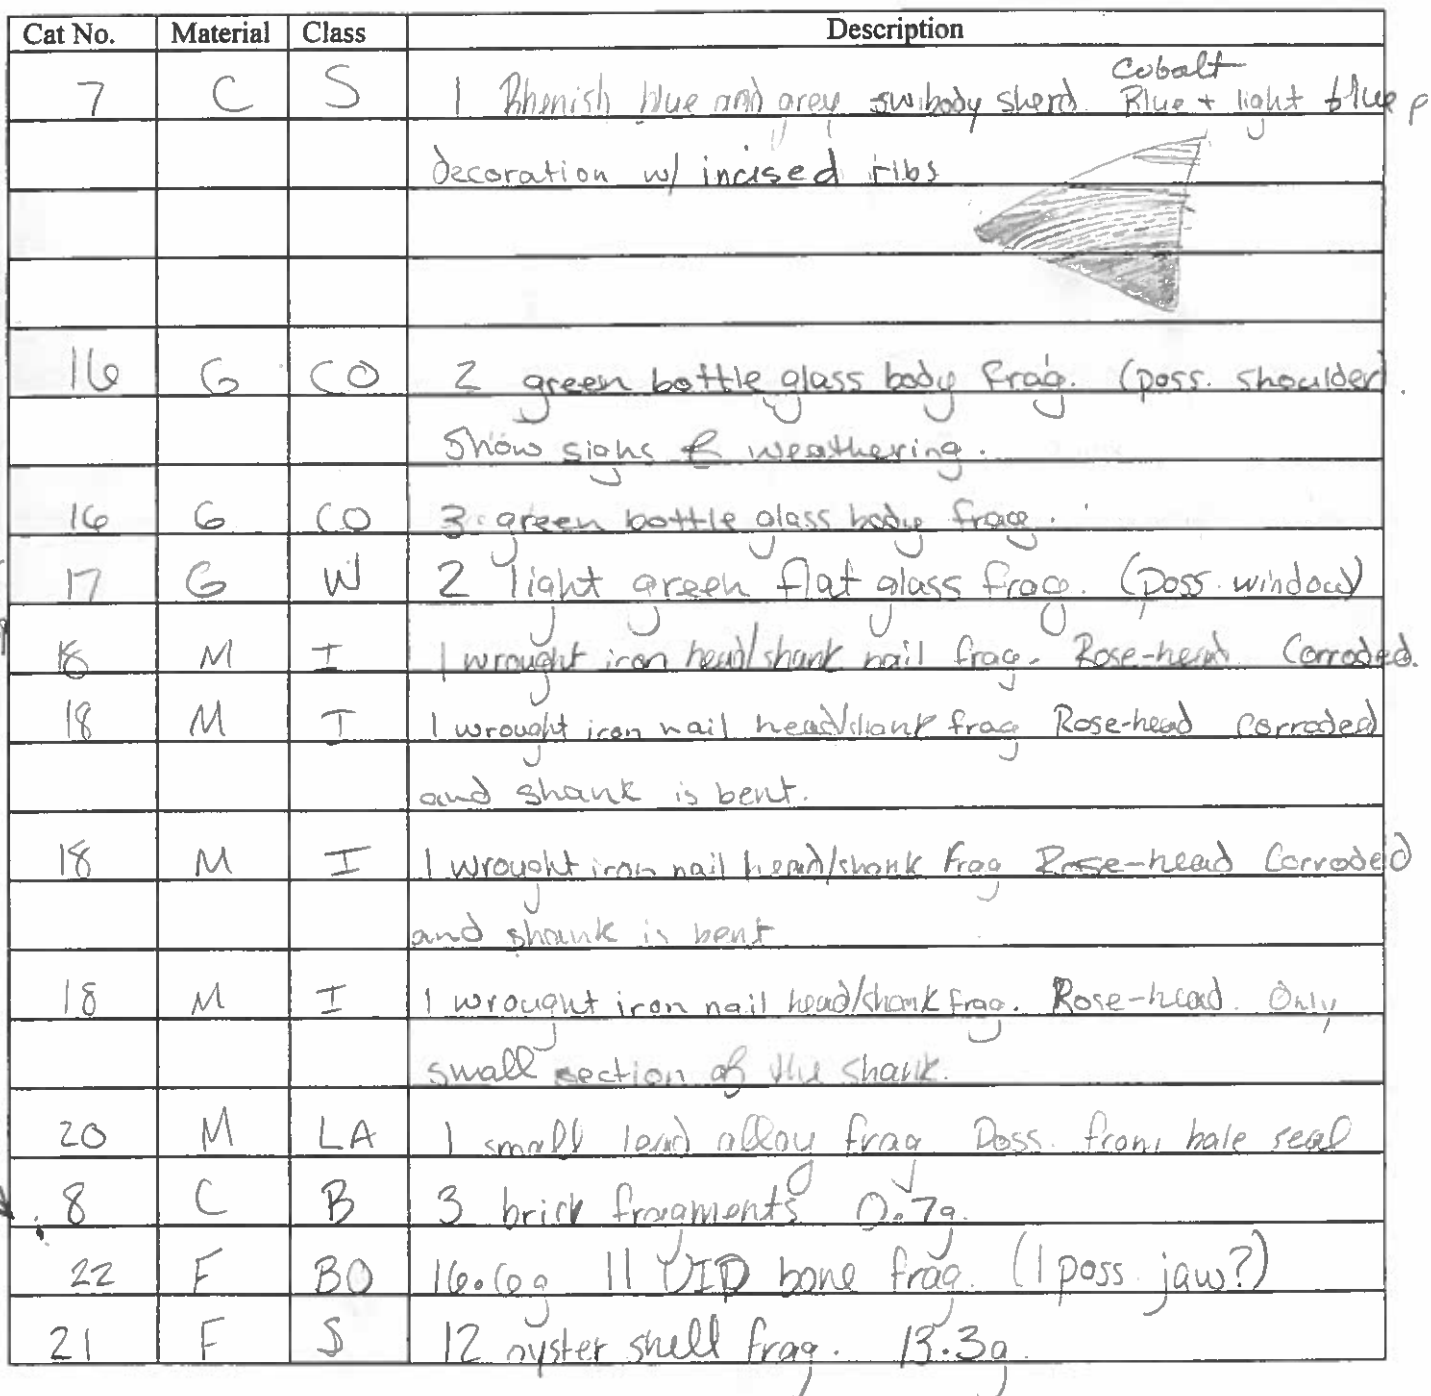 Cat No. Material Class Description
Cobalt
7 C S 1 Rhenish blue and grey sw body sherd. Blue + light blue p
decoration w/ incised ribs
16 G CO 2 green bottle glass body frag. (poss. shoulder).
Show signs of weathering.
16 G CO 3 green bottle glass body frag.
17 G W 2 light green flat glass frag. (poss. window)
18 M I 1 wrought iron head/shank nail frag. Rose-head. Corroded.
18 M I 1 wrought iron nail head/shank frag Rose-head Corroded
and shank is bent.
18 M I 1 wrought iron nail head/shank frag Rose-head Corroded
and shank is bent
18 M I 1 wrought iron nail head/shank frag. Rose-head. Only
small section of the shank.
20 M LA 1 small lead alloy frag Poss. from bale seal
8 C B 3 brick fragments 0.7g.
22 F BO 16.6g 11 UID bone frag. (1 poss. jaw?)
21 F S 12 oyster shell frag. 13.3g.